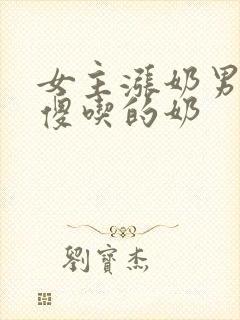 女主漲奶男
傻喫的奶
劉寶杰